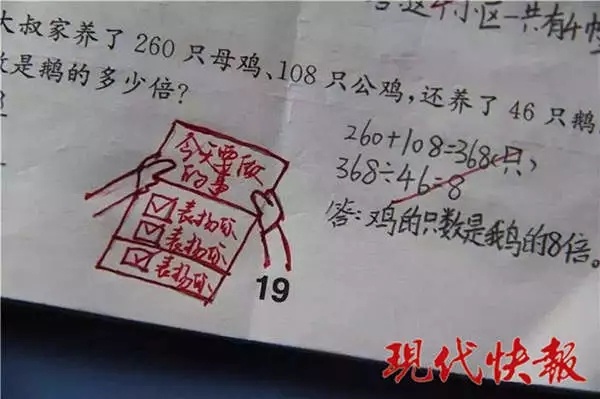 这4个小区一共有4幢
大叔家养了 260 只母鸡、108 只公鸡,还养了 46 只鹅
数是鹅的多少倍?
260+108=368(只)
368÷46=8
答:鸡的只数是鹅的8倍。
今天要做
的事
表扬你
表扬你
表扬你
19
现代快報